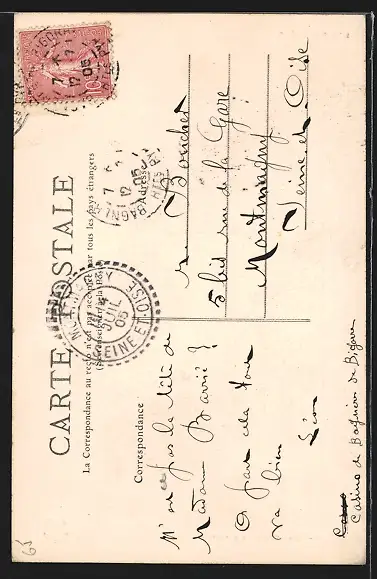 CARTE POSTALE
La Correspondance au recto n'est pas acceptée par tous les pays étrangers
(Se renseigner à la Poste)
Correspondance
Adresse
N'est ce pas la tête de
Madame Barrié ?
A part cela tout
va bien
Léon
Casino de Bagnères de Bigorre
Bouchet
5 bis rue de la Gare
Montmagny
Seine et Oise
MONTMAGNY
JUIL
05
SEINE ET OISE
12
05
10
65